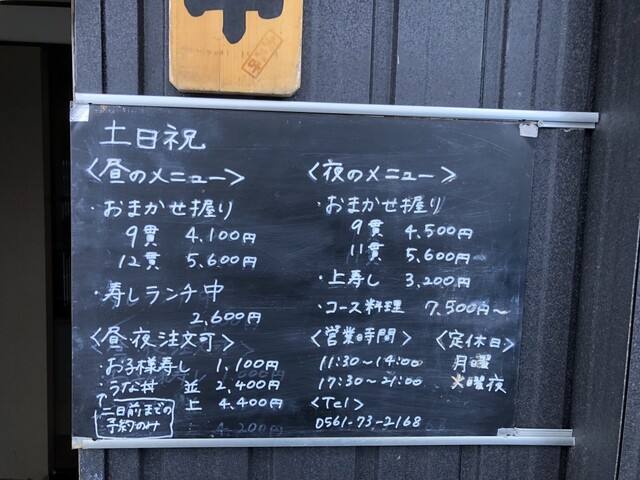 土日祝
〈昼のメニュー〉
・おまかせ握り
9貫 4,100円
12貫 5,600円
・寿しランチ中
2,600円
〈昼・夜注文可〉
・お子様寿し 1,100円
・うな丼 並 2,400円
上 4,400円
↑二日前までの
予約のみ
4,200円
〈夜のメニュー〉
・おまかせ握り
9貫 4,500円
11貫 5,600円
・上寿し 3,200円
・コース料理 7,500円〜
〈営業時間〉
11:30〜14:00
17:30〜21:00
〈Tel〉
0561-73-2168
〈定休日〉
月曜
火曜夜